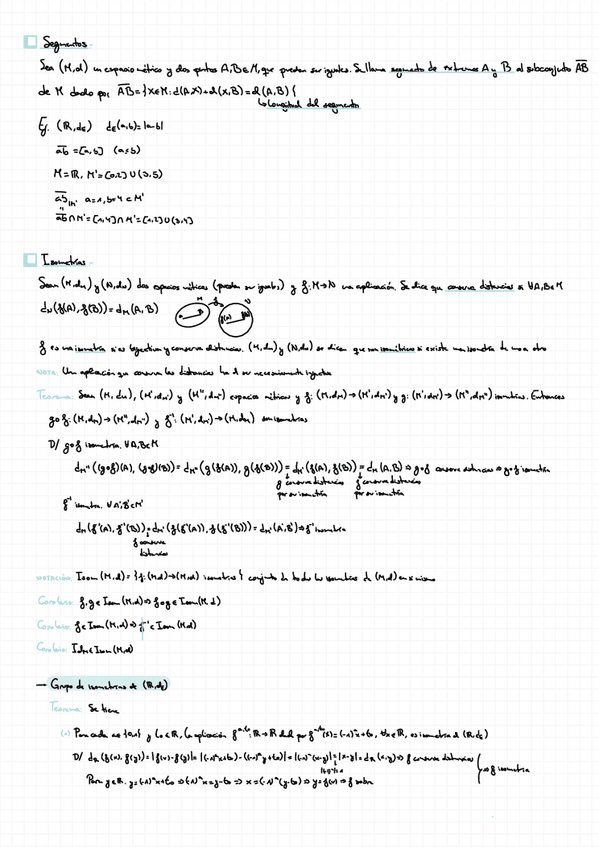 Segmentos
Sea (M,d) un espacio métrico y dos puntos A,B∈M, que pueden ser iguales. Se llama segmento de extremos A y B al subconjunto AB
de M dado por AB = {X∈M: d(A,X)+d(X,B)=d(A,B)}
↳ Longitud del segmento
Ej. (ℝ,dE) dE(a,b)=|a-b|
ab = [a,b] (a≤b)
M=ℝ, M'=[0,2]∪(3,5)
ab|M' a=1, b=4 ∈ M'
ab∩M'=[1,4]∩M'=[1,2]∪(3,4]
Isometrías
Sean (M,dM) y (N,dN) dos espacios métricos (pueden ser iguales) y f:M→N una aplicación. Se dice que conserva distancias si ∀A,B∈M
dN(f(A),f(B)) = dM(A,B)
M f N
A B f(A) f(B)
f es una isometría si es biyectiva y conserva distancias. (M,dM) y (N,dN) se dicen que son isométricos si existe una isometría de uno a otro
NOTA: Una aplicación que conserva las distancias ha de ser necesariamente inyectiva
Teorema: Sean (M,dM), (M',dM') y (M'',dM'') espacios métricos y f:(M,dM)→(M',dM') y g:(M',dM')→(M'',dM'') isometrías. Entonces
g∘f:(M,dM)→(M'',dM'') y f⁻¹:(M',dM')→(M,dM) son isometrías
D/ g∘f isometría. ∀A,B∈M
dM''((g∘f)(A),(g∘f)(B)) = dM''(g(f(A)),g(f(B))) = dM'(f(A),f(B)) = dM(A,B) ⇒ g∘f conserva distancias ⇒ g∘f isometría
g conserva distancias f conserva distancias
por ser isometría por ser isometría
f⁻¹ isometría. ∀A',B'∈M'
dM(f⁻¹(A'),f⁻¹(B')) = dM'(f(f⁻¹(A')),f(f⁻¹(B'))) = dM'(A',B') ⇒ f⁻¹ isometría
f conserva
distancias
NOTACIÓN: Isom(M,d) = {f:(M,d)→(M,d) isometrías} conjunto de todas las isometrías de (M,d) en sí mismo
Corolario: f,g∈Isom(M,d) ⇒ f∘g∈Isom(M,d)
Corolario: f∈Isom(M,d) ⇒ f⁻¹∈Isom(M,d)
Corolario: IdM∈Isom(M,d)
— Grupo de isometrías de (ℝ,dE)
Teorema: Se tiene